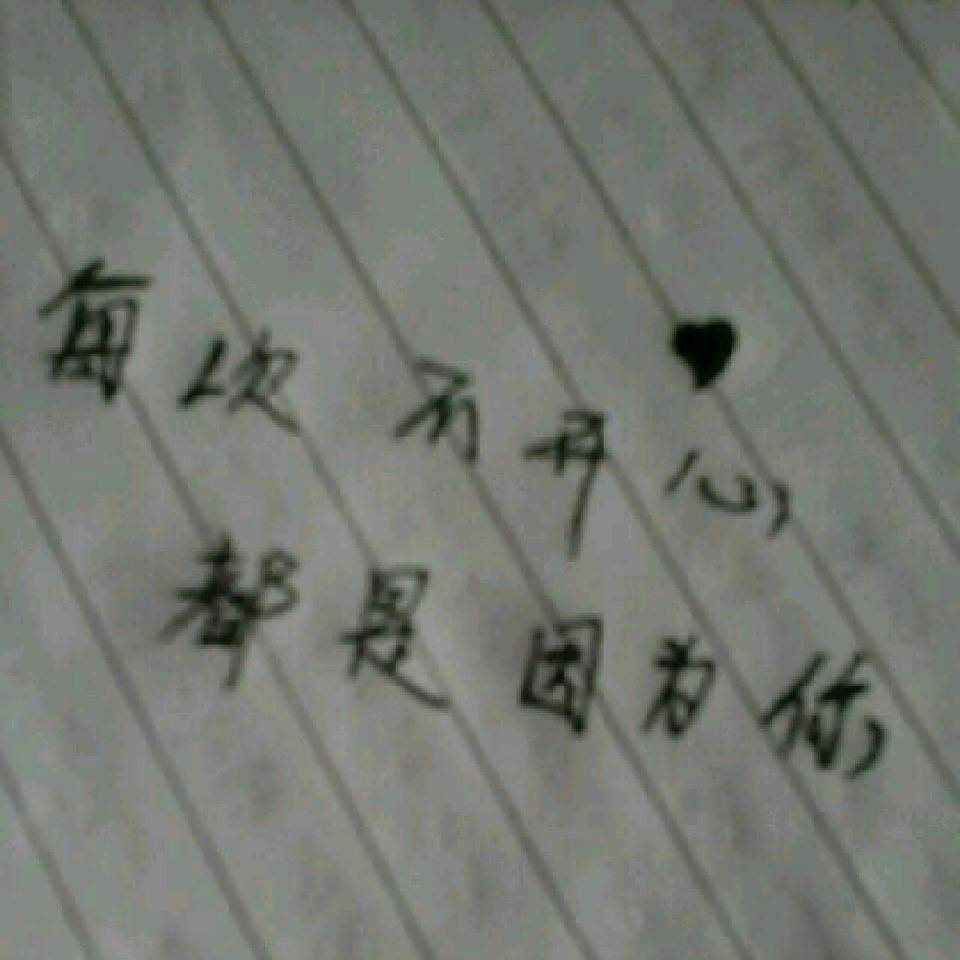 每次不开心,
都是因为你,